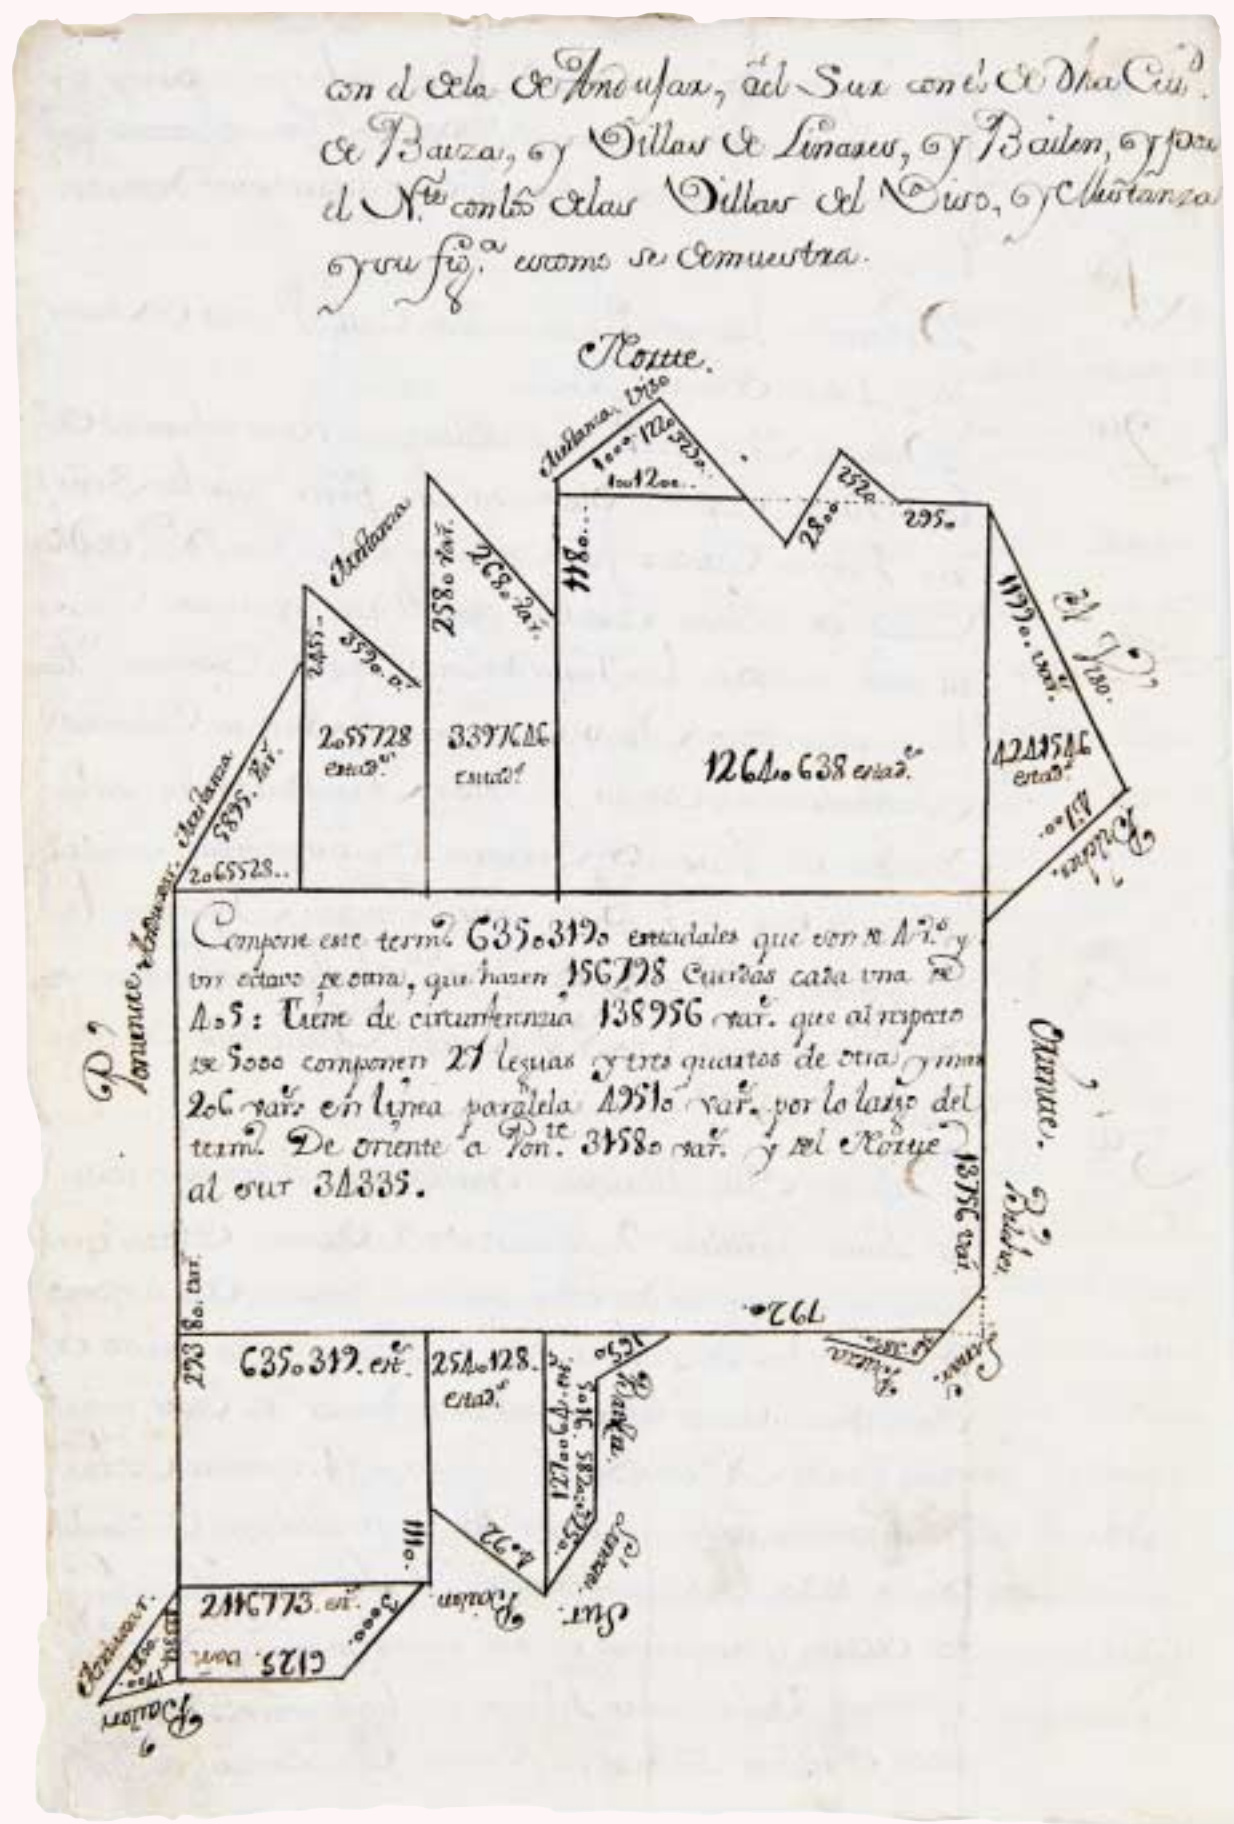 con el dela de Andujar, ael Sur con el de dha Ciud.
de Baeza, y Villas de Linares, y Bailen, y por
el N.te con los delas Villas del Viso, y Mestanza
y su fig.a es como se demuestra.
Norte.
Mestanza, Viso
1000. 1220
3230..
1180...
2520
2800
2950
Mestanza
2580 var.s
2680 var.s
2455.
3590. v.s
11990. var.s
el Viso.
2055728
estad.s
3397646
estad.s
12640638 estad.s
4241546
estad.s
4700.
Bilches.
Mestanza
5895. var.s
2065528..
Compone este term.o 63503190 estadales que son de 4 v.s y
un octavo de otra, que hazen 156798 Cuerdas cada una de
405: Tiene de circunferenzia 138956 var.s que al respecto
de 5000 componen 27 leguas y tres quartos de otra y mas
206 var.s en linea paralela 49510 var.s por lo largo del
term.o De oriente a Pon.te 31580 var.s y del Norte
al sur 34335.
Poniente Andujar.
Oriente.
Bilches.
13756 var.s
29380. var.s
7920.
Baeza
Linar.s
6350319. est.s
2540128.
estad.s
1650
Baeza.
5016
5820
3250.
Linares.
Sur.
1110.
4092
Bailen
2116773. est.s
3000.
6125. var.s
Andujar.
1700.
Bailen